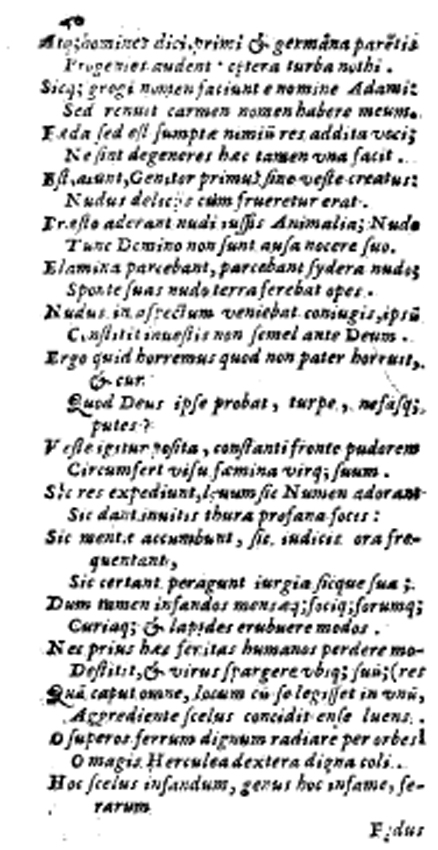 40
Atq; homines dici primi & germâna parētis
Progenies audent · cętera turba nothi.
Sicq; gregi nomen faciunt e nomine Adami:
Sed renuit carmen nomen habere meum.
Fœda sed est sumptæ nimiũ res addita voci;
Ne sint degeneres hæc tamen vna facit.
Est, aiunt, Genitor primus sine veste creatus:
Nudus delicijs cùm frueretur erat.
Præsto aderant nudi iussis Animalia; Nudo
Tunc Domino non sunt ausa nocere suo.
Flamina parcebant, parcebant sydera nudo;
Sponte suas nudo terra ferebat opes.
Nudus in aspectum veniebat coniugis, ipsũ
Constitit inuestis non semel ante Deum.
Ergo quid horremus quod non pater horruit,
& cur
Quod Deus ipse probat, turpe, nefasq;
putes?
Veste igitur posita, constanti fronte pudorem
Circumfert visu fæmina virq; suum.
Sic res expediunt, sic Numen adorant
Sic dant inuitis thura profana focis:
Sic mensæ accumbunt, sic iudicis ora fre-
quentant,
Sic certant peragunt iurgia sicque sua;
Dum tamen infandos mensæq; sociq; forumq;
Curiaq; & lapides erubuere modos.
Nec prius hæc feritas humanos perdere mo-
Destitit, & virus spargere vbiq; suũ; (res
Quã caput omne, locum cũ se legisset in vnũ,
Aggrediente scelus concidit ense luens.
O superos ferrum dignum radiare per orbes!
O magis Herculea dextera digna coli.
Hoc scelus infandum, genus hoc infame, fe-
rarum
Fędus